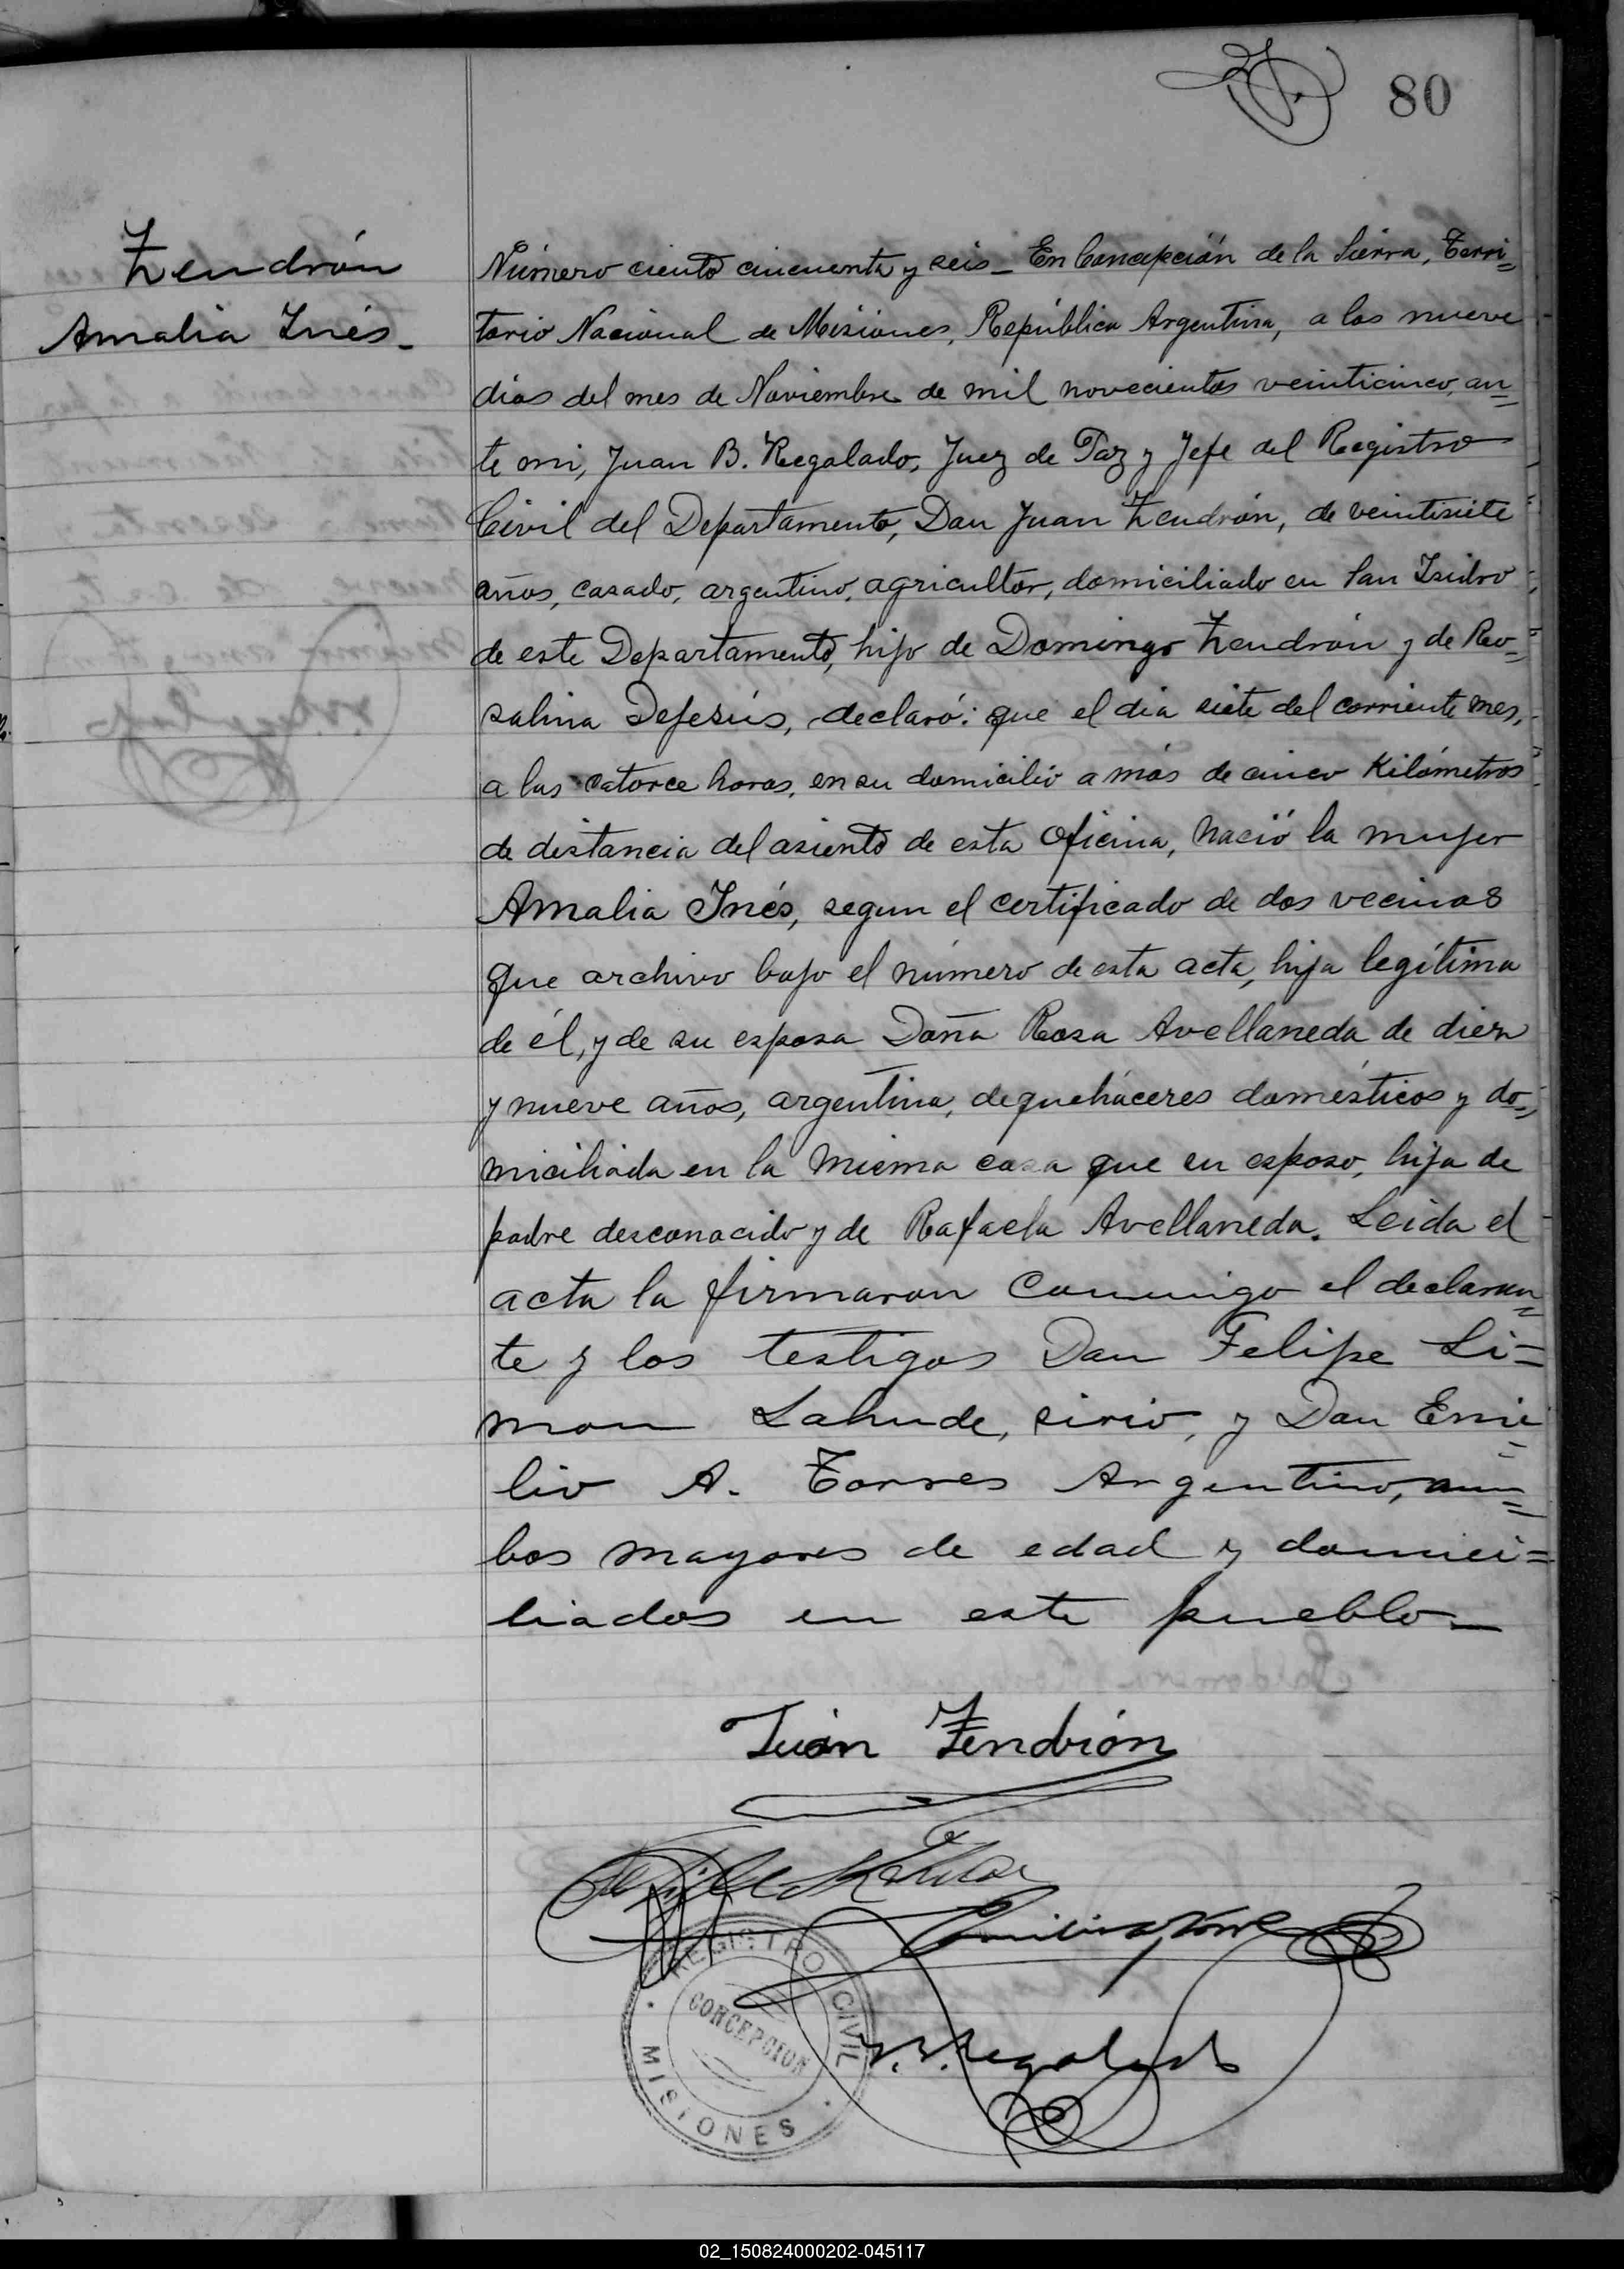 80
Zendrón
Amalia Inés.
Número ciento cincuenta y seis_ En Concepción de la Sierra, Terri=
torio Nacional de Misiones, República Argentina, a los nueve
días del mes de Noviembre de mil novecientos veinticinco, an=
te mi, Juan B. Regalado, Juez de Paz y Jefe del Registro
Civil del Departamento, Don Juan Zendrón, de veintisiete
años, casado, argentino, agricultor, domiciliado en San Isidro
de este Departamento, hijo de Domingo Zendrón y de Ro=
salina Dejesús, declaró: que el día siete del corriente mes,
a las catorce horas, en su domicilio a más de cinco Kilómetros
de distancia del asiento de esta Oficina, nació la mujer
Amalia Inés, segun el certificado de dos vecinos
que archivo bajo el número de esta acta, hija legítima
de él, y de su esposa Doña Rosa Avellaneda de diez
y nueve años, argentina, de quehaceres domésticos y do=
miciliada en la misma casa que su esposo, hija de
padre desconocido y de Rafaela Avellaneda. Leida el
acta la firmaron conmigo el declaran=
te y los testigos Don Felipe Si=
mon Lahude, sirio, y Don Emi=
lio A. Torres Argentino, am=
bos mayores de edad y domici=
liados en este pueblo_
Juan Zendrón
Emilio A Torres
J. B. Regalado
REGISTRO CIVIL
CONCEPCION
MISIONES
02_150824000202-045117